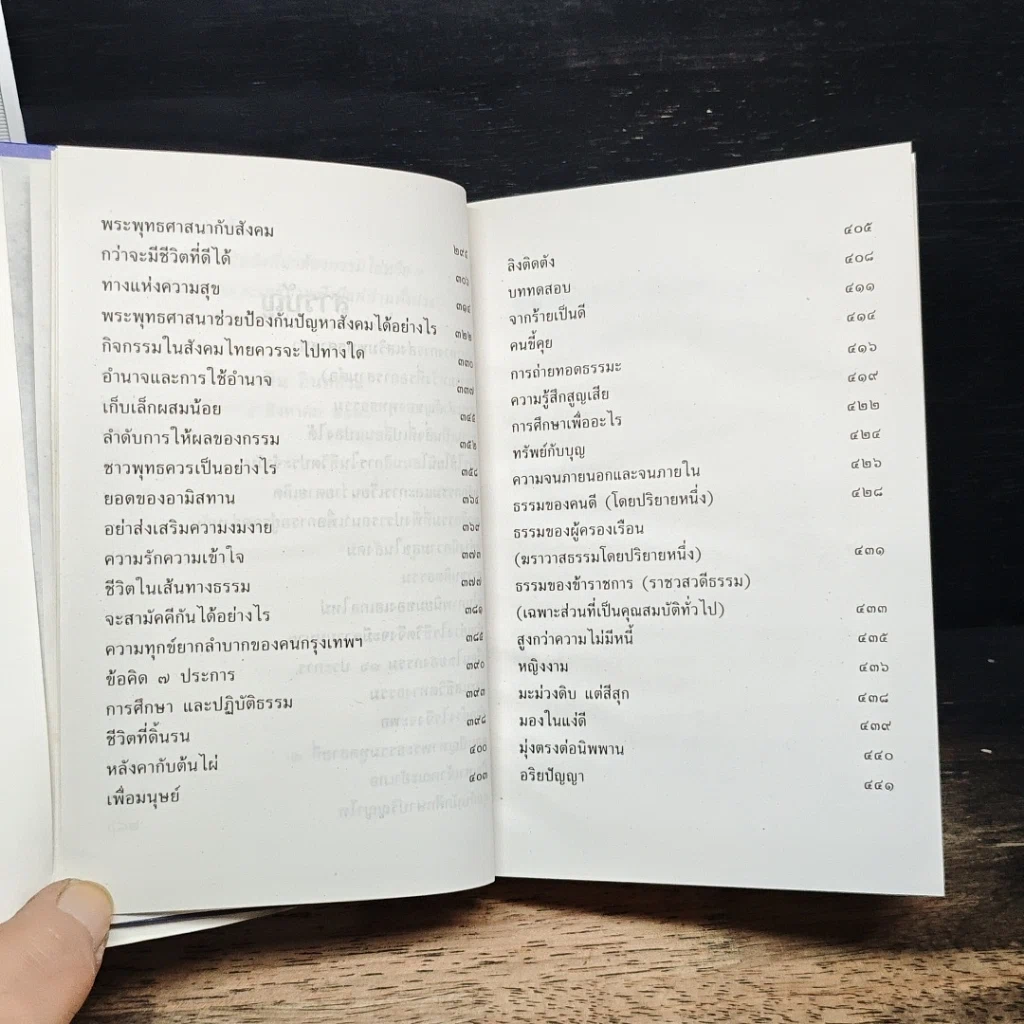 พระพุทธศาสนากับสังคม ๒๙๕
กว่าจะมีชีวิตที่ดีได้ ๓๐๖
ทางแห่งความสุข ๓๑๔
พระพุทธศาสนาช่วยป้องกันปัญหาสังคมได้อย่างไร ๓๒๒
กิจกรรมในสังคมไทยควรจะไปทางใด ๓๓๐
อำนาจและการใช้อำนาจ ๓๓๗
เก็บเล็กผสมน้อย ๓๔๕
ลำดับการให้ผลของกรรม ๓๕๒
ชาวพุทธควรเป็นอย่างไร ๓๕๘
ยอดของอามิสทาน ๓๖๔
อย่าส่งเสริมความงมงาย ๓๖๙
ความรักความเข้าใจ ๓๗๓
ชีวิตในเส้นทางธรรม ๓๗๗
จะสามัคคีกันได้อย่างไร ๓๘๑
ความทุกข์ยากลำบากของคนกรุงเทพฯ ๓๘๕
ข้อคิด ๗ ประการ ๓๙๐
การศึกษา และปฏิบัติธรรม ๓๙๓
ชีวิตที่ดิ้นรน ๓๙๘
หลังคากับต้นไผ่ ๔๐๐
เพื่อมนุษย์ ๔๐๓
ลิงติดตัง ๔๐๕
บททดสอบ ๔๐๘
จากร้ายเป็นดี ๔๑๑
คนขี้คุย ๔๑๔
การถ่ายทอดธรรมะ ๔๑๖
ความรู้สึกสูญเสีย ๔๑๙
การศึกษาเพื่ออะไร ๔๒๒
ทรัพย์กับบุญ ๔๒๔
ความจนภายนอกและจนภายใน ๔๒๖
ธรรมของคนดี (โดยปริยายหนึ่ง) ๔๒๘
ธรรมของผู้ครองเรือน
(ฆราวาสธรรมโดยปริยายหนึ่ง) ๔๓๑
ธรรมของข้าราชการ (ราชวสวดีธรรม)
(เฉพาะส่วนที่เป็นคุณสมบัติทั่วไป) ๔๓๓
สูงกว่าความไม่มีหนี้ ๔๓๕
หญิงงาม ๔๓๖
มะม่วงดิบ แต่สีสุก ๔๓๘
มองในแง่ดี ๔๓๙
มุ่งตรงต่อนิพพาน ๔๔๐
อริยปัญญา ๔๔๑